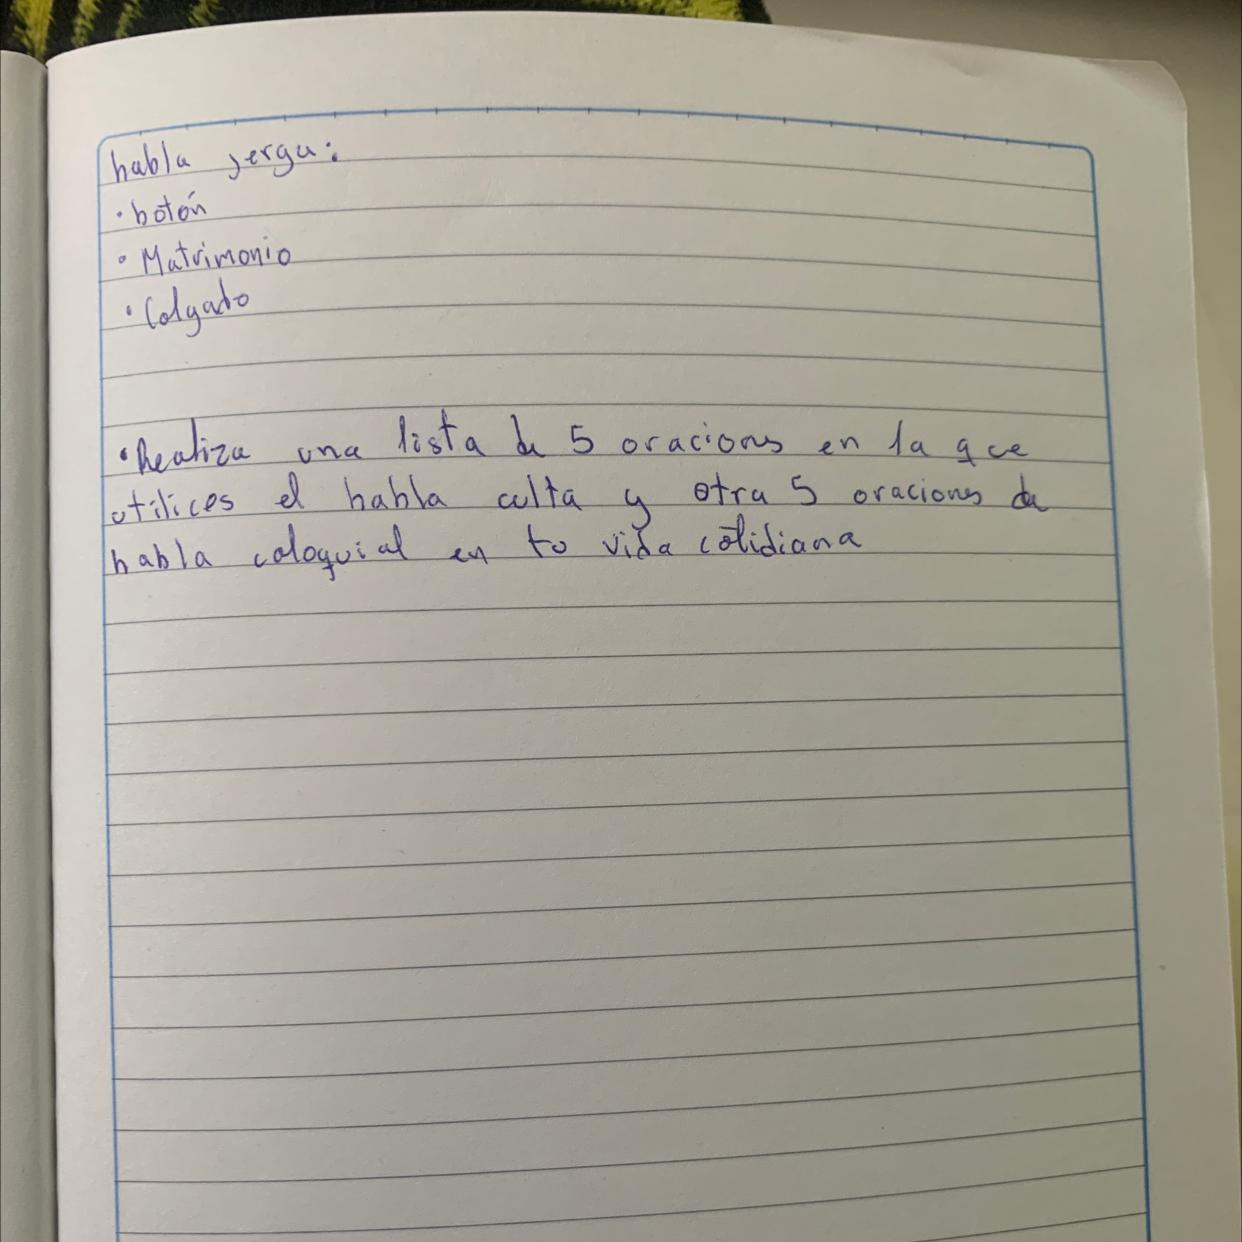 habla jerga:
• botón
• Matrimonio
• Colgado
• Realiza una lista de 5 oracions en la que
utilices el habla culta y otra 5 oraciones de
habla coloquial en tu vida cotidiana